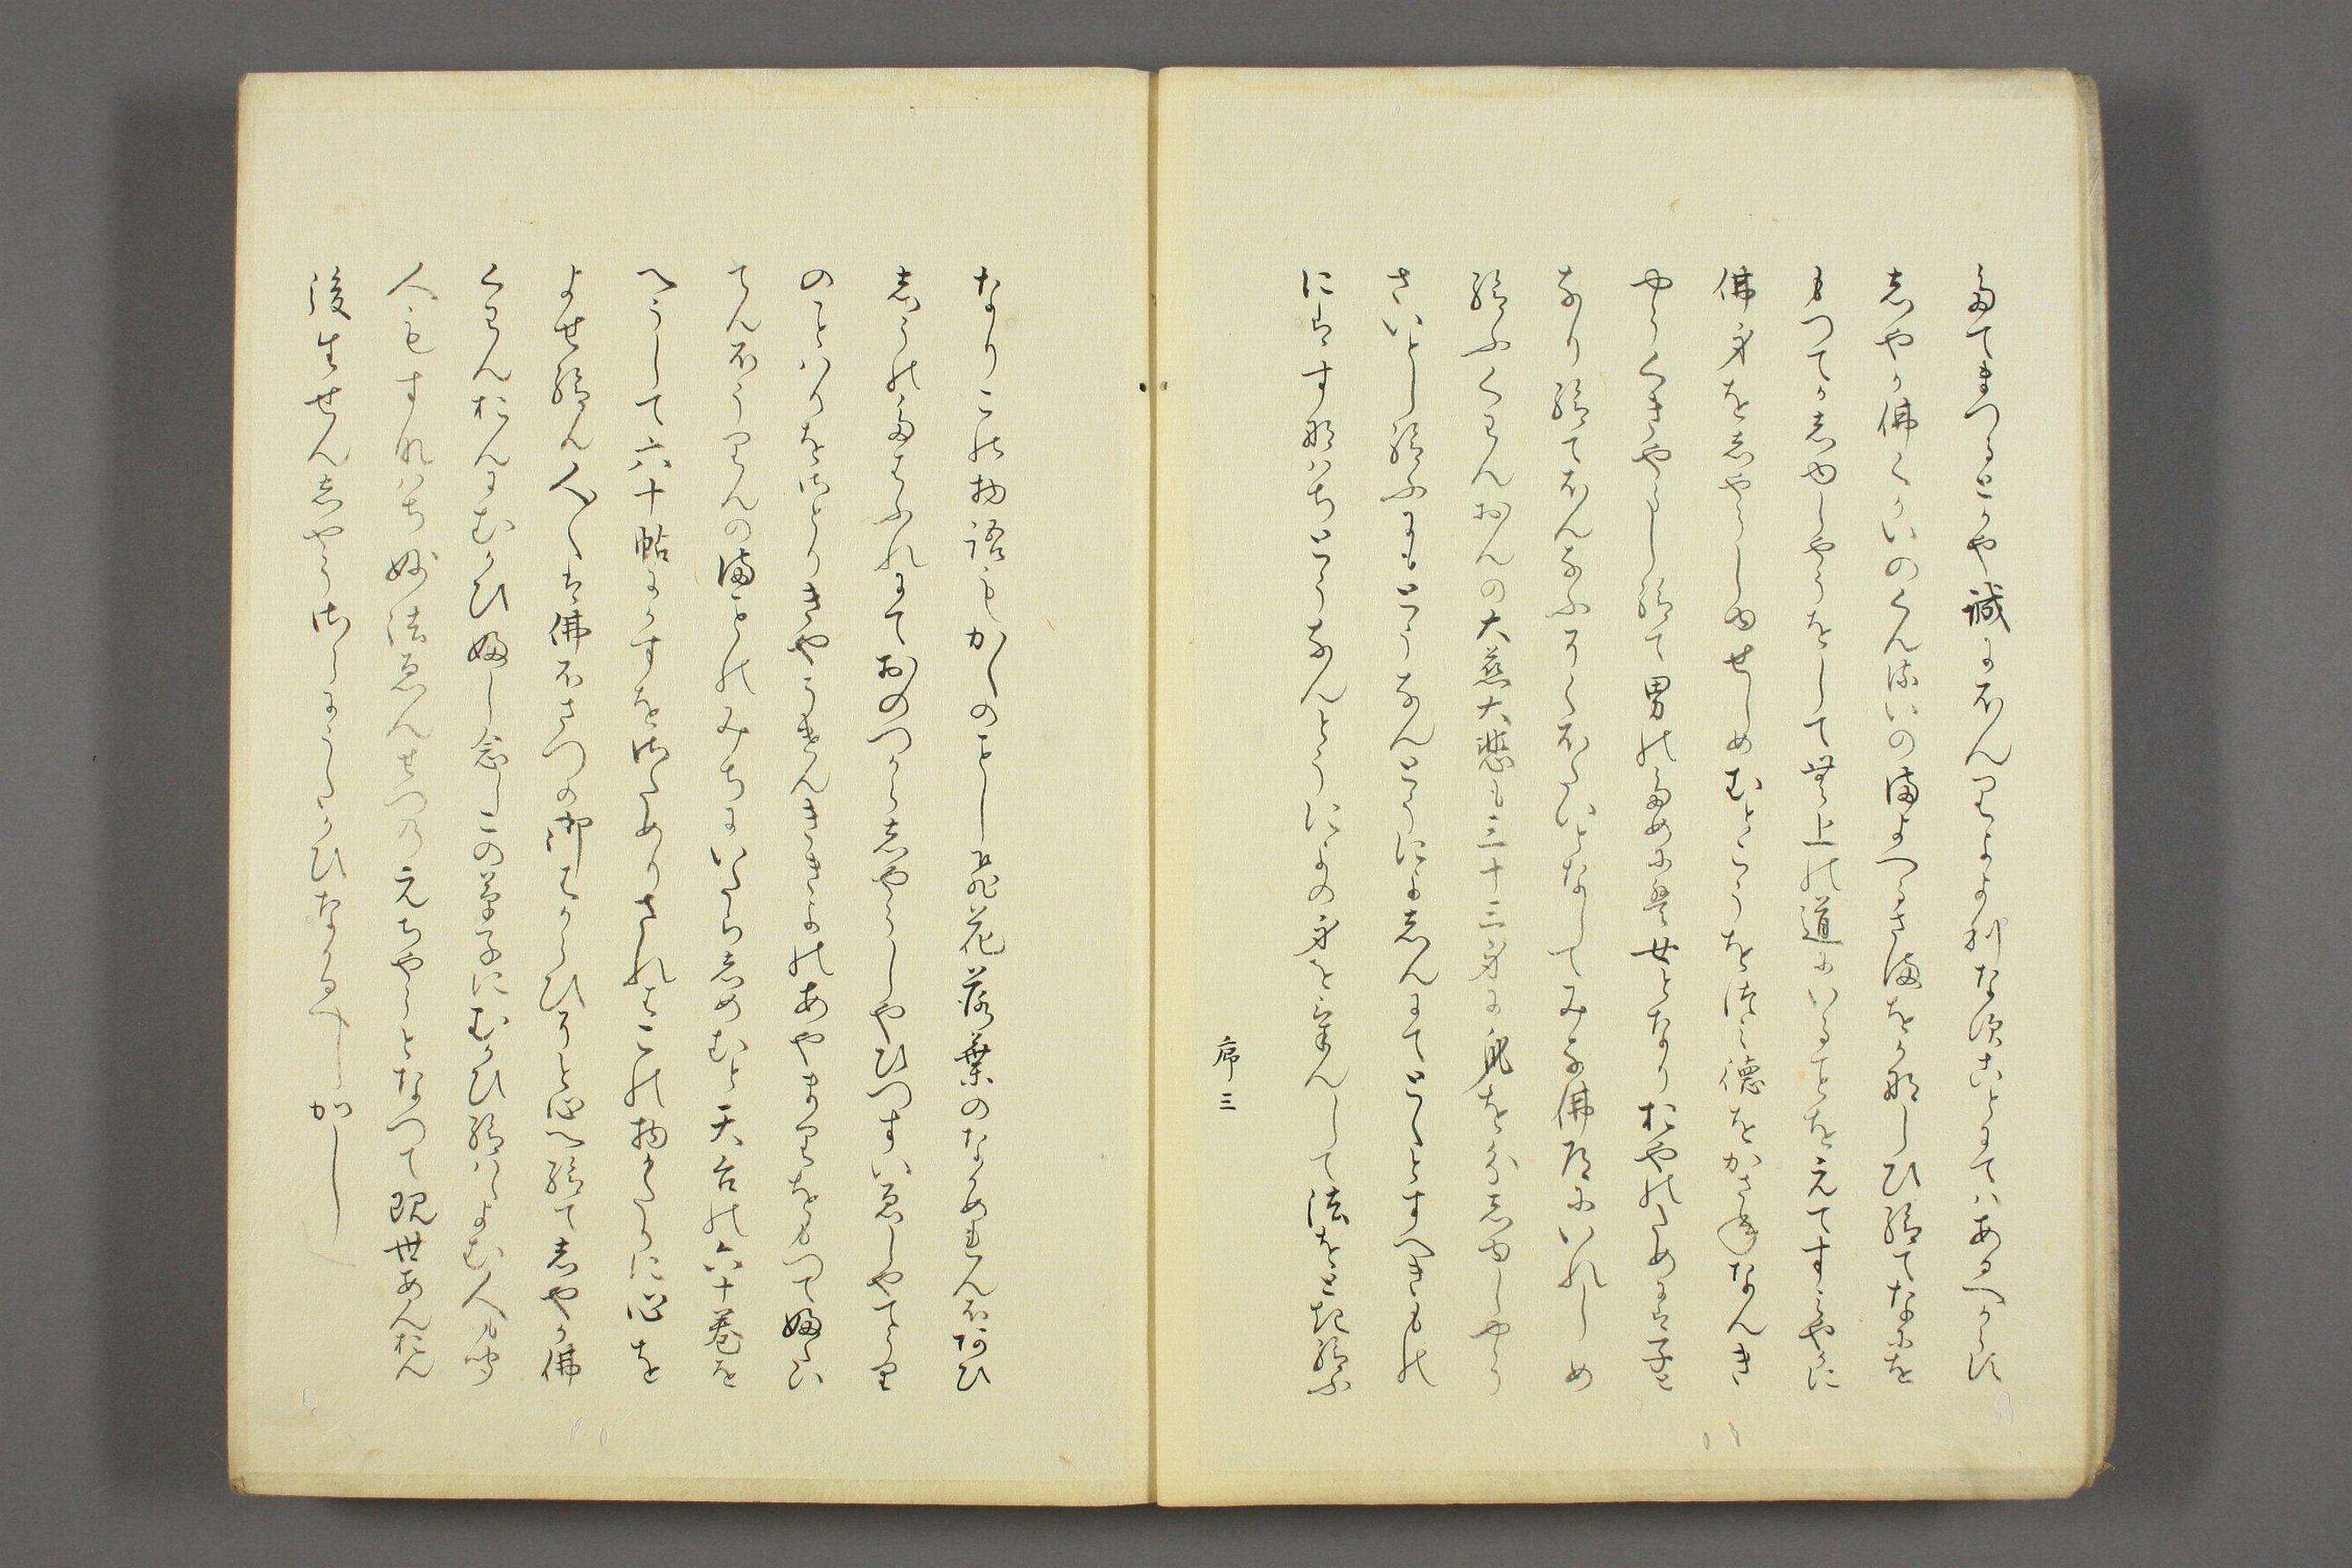 たてまつるとかや誠にほんりよより外な源ことにてはあるへからす
志やか佛くかいのくん類いのまよへるさまをかなしひ給てなにを
もつてか志ゆしやうをして無上の道にいることをえてすみやかに
佛身を志やうしゆせしめむとこうをつみ徳をかさねなんき
やうくきやうし給て男のために女となりおやのためには子と
なり給てほんなふそくほたいとなしてみな佛道にいれしめ
給ふくわんおんの大慈大悲も三十三身に身を分志ゆしやう
さいとし給ふにもとうなんとうによ志んにてとくとすへきもの
にはすなはちとうなんとうによの身を現して法をとき給ふ
序三
なりこの物語もかくのことし飛花落葉のなかめせんほうひ
志うのたはふれにておのつから志やうしやひつすいゑしやてうり
のことはりをさとりきやうけんききよのあやまりをもつてかへつて
てんほうりんのまことのみちにいたら志めむと天台の六十巻を
へうして六十帖にかすをさためりされはこの物かたりに心を
よせ給ん人々は佛ほさつの御はからひそと心へ給て志やか佛
くわんおんにむかひ御し念しこの草子にむかひ給はゝよむ人も聞
人もすなはち妙法ゑんせつのえちやうとなつて現世あんおん
後生せん志やううたかひなかるへしかし